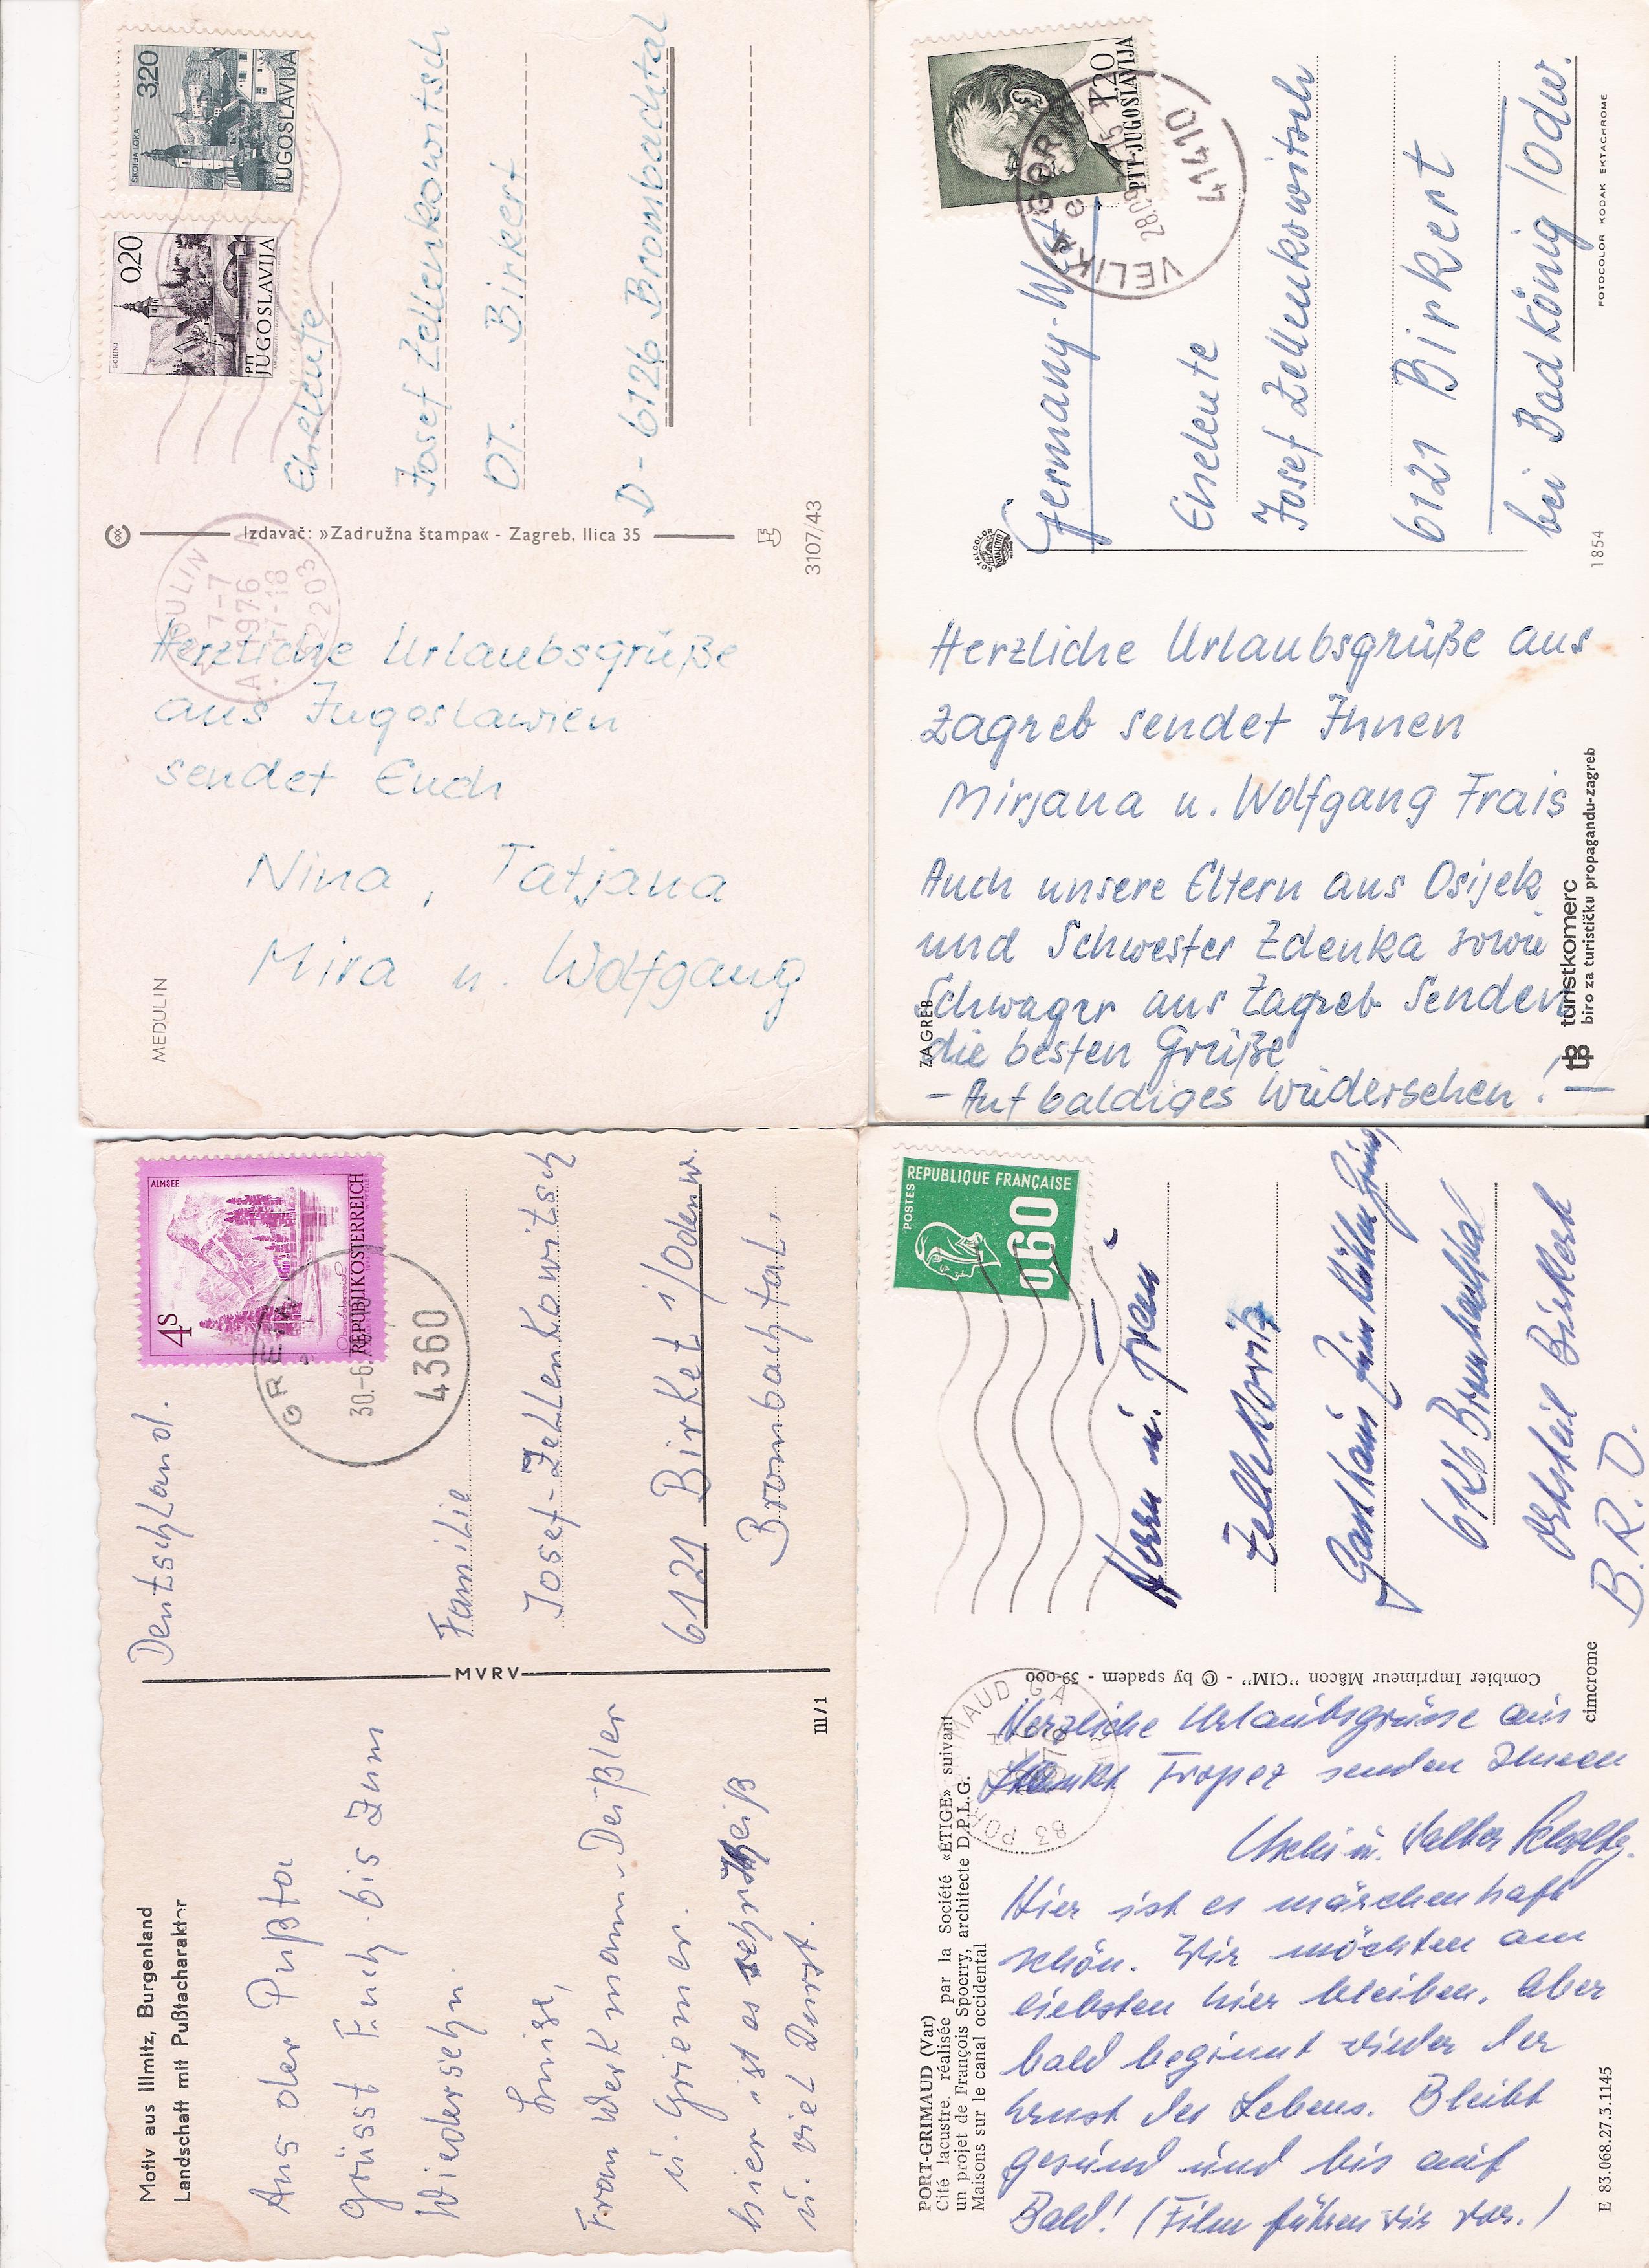 BOHINJ
0,20
PTT
JUGOSLAVIJA
ŠKOFJA LOKA
3,20
JUGOSLAVIJA
Izdavač: »Zadružna štampa« - Zagreb, Ilica 35
3107/43
MEDULIN
7-7
1976
17-18
Herzliche Urlaubsgrüße
aus Jugoslawien
sendet Euch
Nina, Tatjana
Mira u. Wolfgang
Eheleute
Josef Zellenkowitsch
OT. Birkert
D-6126 Brombachtal
1,20
PTT-JUGOSLAVIJA
VELIKA GORICA
28.09
41410
ZAGREB
Herzliche Urlaubsgrüße aus
Zagreb sendet Ihnen
Mirjana u. Wolfgang Frais
Auch unsere Eltern aus Osijek
und Schwester Zdenka sowie
Schwager aus Zagreb senden
die besten Grüße
- Auf baldiges Wiedersehen!
Germany-West
Eheleute
Josef Zellenkowitsch
6121 Birkert
bei Bad König/Odw.
1854
FOTOCOLOR KODAK EKTACHROME
turistkomerc
biro za turističku propagandu-zagreb
Motiv aus Illmitz, Burgenland
Landschaft mit Pußtacharakter
Aus der Pußta
grüsst Euch bis zum
Wiedersehn.
Luise,
Frau Werkmann-Deißler
u. Griener.
hier ist es sehr heiß
u. viel Durst.
MVRV
III/1
ALMSEE
4S
REPUBLIK ÖSTERREICH
GREIN
30.-6.
4360
Deutschland.
Familie
Josef-Zellenkowitsch
6121 Birket i/Odenw.
Brombachtal.
PORT-GRIMAUD (Var)
Cité lacustre, réalisée par la Société «ETIGE» suivant
un projet de François Spoerry, architecte D.P.L.G.
Maisons sur le canal occidental
Herzliche Urlaubsgrüsse aus
Sankt Tropez senden Ihnen
Uschi u. Walter
Hier ist es märchenhaft
schön. Wir möchten am
liebsten hier bleiben. Aber
bald beginnt wieder der
Ernst des Lebens. Bleibt
gesund und bis auf
Bald! (Film führen wir vor.)
E 83.068.27.3.1145
Combier Imprimeur Mâcon "CIM" - © by spadem - 39-000
cimcrome
POSTES
REPUBLIQUE FRANÇAISE
0,60
83 PORT GRIMAUD
Herrn u. Frau
Zellekovitz
Gasthaus zum
6126 Brombachthal
Ortsteil Birkert
B.R.D.